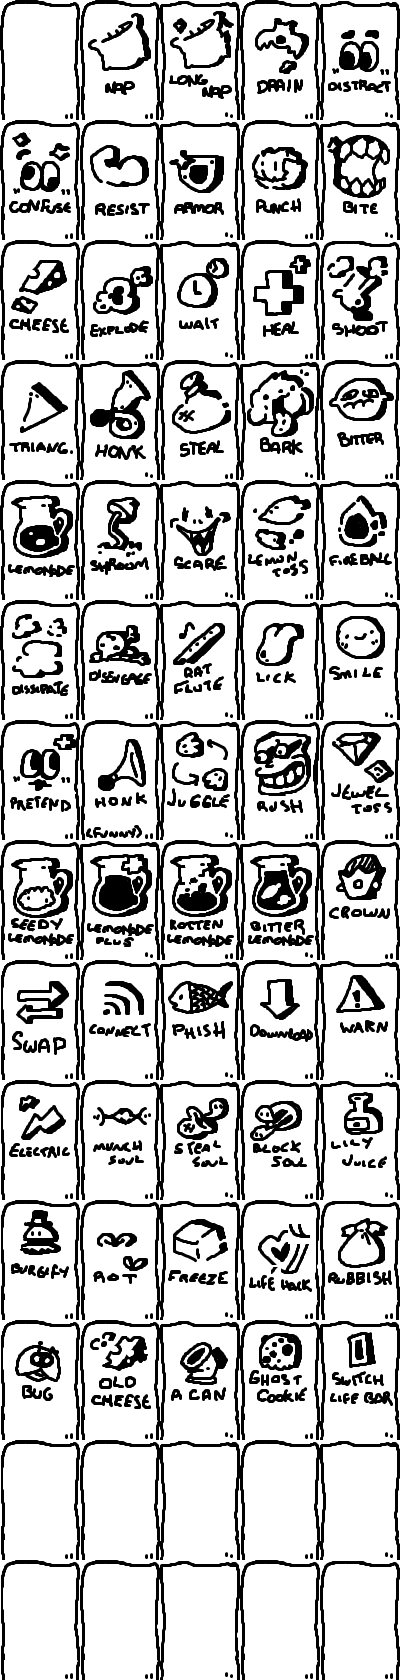 NAP
LONG
NAP
DRAIN
DISTRACT
CONFUSE
RESIST
ARMOR
PUNCH
BITE
CHEESE
EXPLODE
WAIT
HEAL
SHOOT
TRIANG.
HONK
STEAL
BARK
BITTER
LEMONADE
SHROOM
SCARE
LEMON
TOSS
FIREBALL
DISSIPATE
DISENGAGE
RAT
FLUTE
LICK
SMILE
PRETEND
HONK
(FUNNY)
JUGGLE
RUSH
JEWEL
TOSS
SEEDY
LEMONADE
LEMONADE
PLUS
ROTTEN
LEMONADE
BITTER
LEMONADE
CROWN
SWAP
CONNECT
PHISH
DOWNLOAD
WARN
ELECTRIC
MUNCH
SOUL
STEAL
SOUL
BLOCK
SOUL
LILY
JUICE
BURGIFY
ROT
FREEZE
LIFE HACK
RUBBISH
BUG
OLD
CHEESE
A CAN
GHOST
COOKIE
SWITCH
LIFE BAR